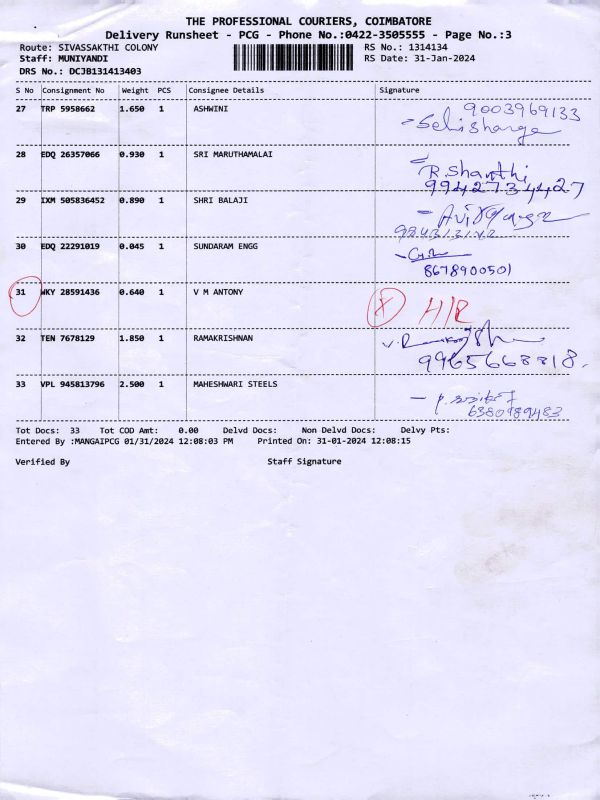 THE PROFESSIONAL COURIERS, COIMBATORE
Delivery Runsheet - PCG - Phone No.:0422-3505555 - Page No.:3
Route: SIVASSAKTHI COLONY RS No.: 1314134
Staff: MUNIYANDI RS Date: 31-Jan-2024
DRS No.: DCJB131413403
S No Consignment No Weight PCS Consignee Details Signature
27 TRP 5958662 1.650 1 ASHWINI 9003969133
28 EDQ 26357066 0.930 1 SRI MARUTHAMALAI R.Shanthi
9942734427
29 IXM 505836452 0.890 1 SHRI BALAJI
30 EDQ 22291019 0.045 1 SUNDARAM ENGG
8678900501
31 WKY 28591436 0.640 1 V M ANTONY X H/R
32 TEN 7678129 1.850 1 RAMAKRISHNAN
9965668818.
33 VPL 945813796 2.500 1 MAHESHWARI STEELS
6380989483
Tot Docs: 33 Tot COD Amt: 0.00 Delvd Docs: Non Delvd Docs: Delvy Pts:
Entered By :MANGAIPCG 01/31/2024 12:08:03 PM Printed On: 31-01-2024 12:08:15
Verified By Staff Signature